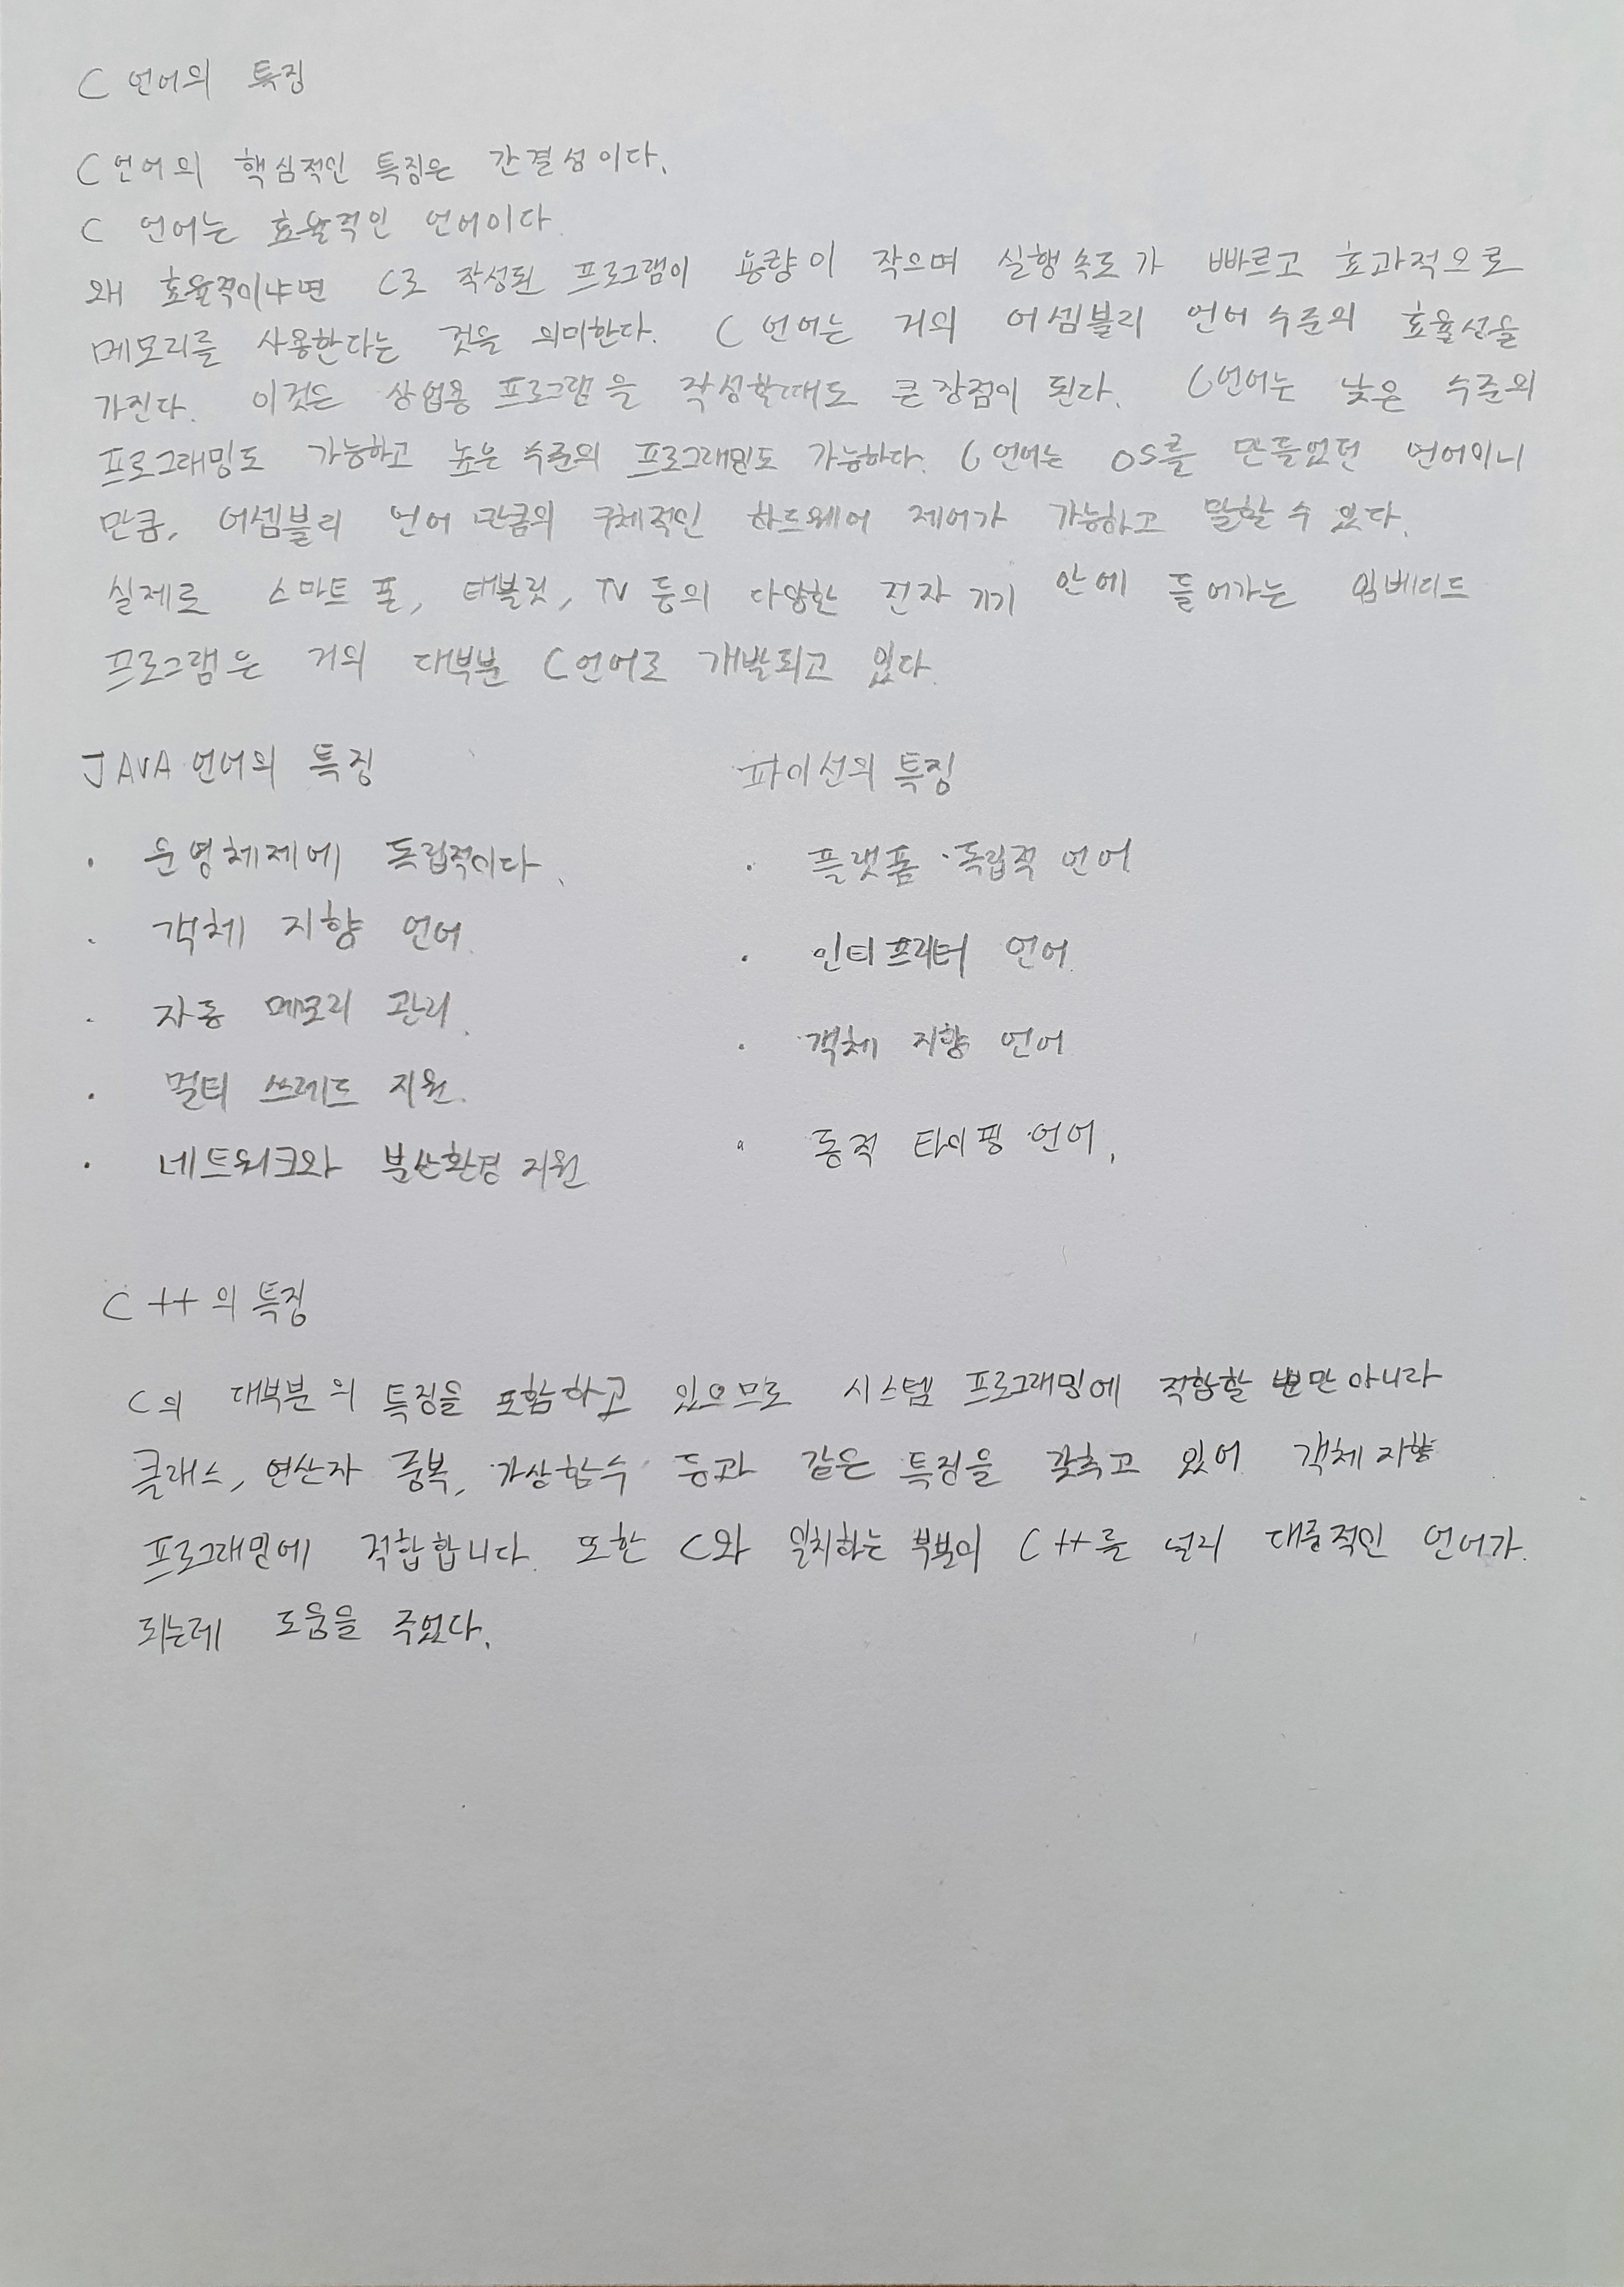 C 언어의 특징
C언어의 핵심적인 특징은 간결성이다.
C 언어는 효율적인 언어이다
왜 효율적이냐면 C로 작성된 프로그램이 용량이 작으며 실행속도가 빠르고 효과적으로
메모리를 사용한다는 것을 의미한다. C 언어는 거의 어셈블리 언어 수준의 효율성을
가진다. 이것은 상업용 프로그램을 작성할때도 큰 장점이 된다. C언어는 낮은 수준의
프로그래밍도 가능하고 높은 수준의 프로그래밍도 가능하다. C언어는 OS를 만들었던 언어이니
만큼, 어셈블리 언어 만큼의 구체적인 하드웨어 제어가 가능하고 말할 수 있다.
실제로 스마트 폰, 태블릿, TV 등의 다양한 전자 기기 안에 들어가는 임베디드
프로그램은 거의 대부분 C언어로 개발되고 있다.
JAVA 언어의 특징
· 운영체제에 독립적이다.
· 객체 지향 언어.
· 자동 메모리 관리.
· 멀티 쓰레드 지원.
· 네트워크와 분산환경 지원
파이선의 특징
· 플랫폼 독립적 언어
· 인터프리터 언어.
· 객체 지향 언어
· 동적 타이핑 언어.
C++의 특징
C의 대부분의 특징을 포함하고 있으므로 시스템 프로그래밍에 적합할 뿐만 아니라
클래스, 연산자 중복, 가상함수 등과 같은 특징을 갖추고 있어 객체지향
프로그래밍에 적합합니다. 또한 C와 일치하는 부분이 C++를 널리 대중적인 언어가
되는데 도움을 주었다.